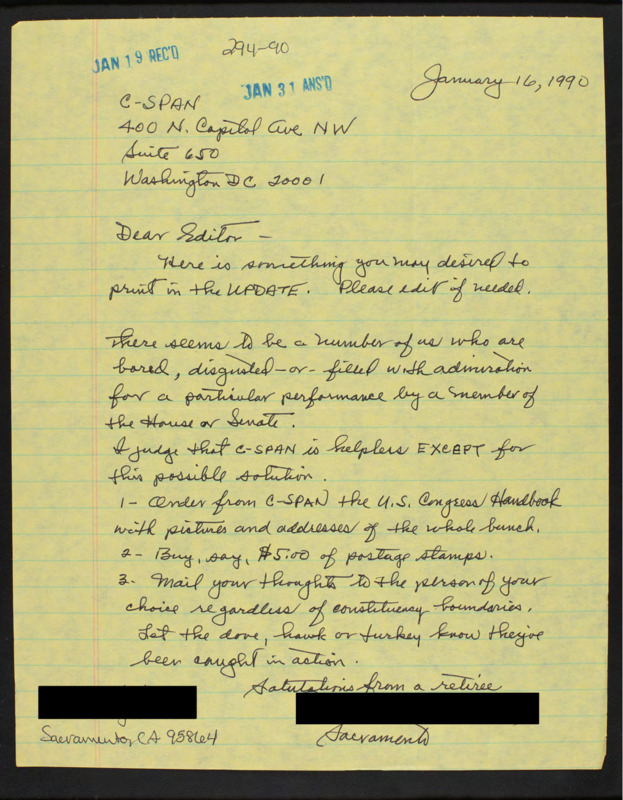 JAN 19 REC'D
294-90
JAN 31 ANS'D
January 16, 1990
C-SPAN
400 N. Capitol Ave NW
Suite 650
Washington DC 20001
Dear Editor -
Here is something you may desired to
print in the UPDATE. Please edit if needed.
There seems to be a number of us who are
bored, disgusted -or- filled with admiration
for a particular performance by a member of
the House or Senate.
I judge that C-SPAN is helpless EXCEPT for
this possible solution.
1- Order from C-SPAN the U.S. Congress Handbook
with pictures and addresses of the whole bunch.
2- Buy, say, $5.00 of postage stamps.
3- Mail your thoughts to the person of your
choice regardless of constituency boundories.
Let the dove, hawk or turkey know they've
been caught in action.
Salutations from a retiree
Sacramento, CA 95864
Sacramento